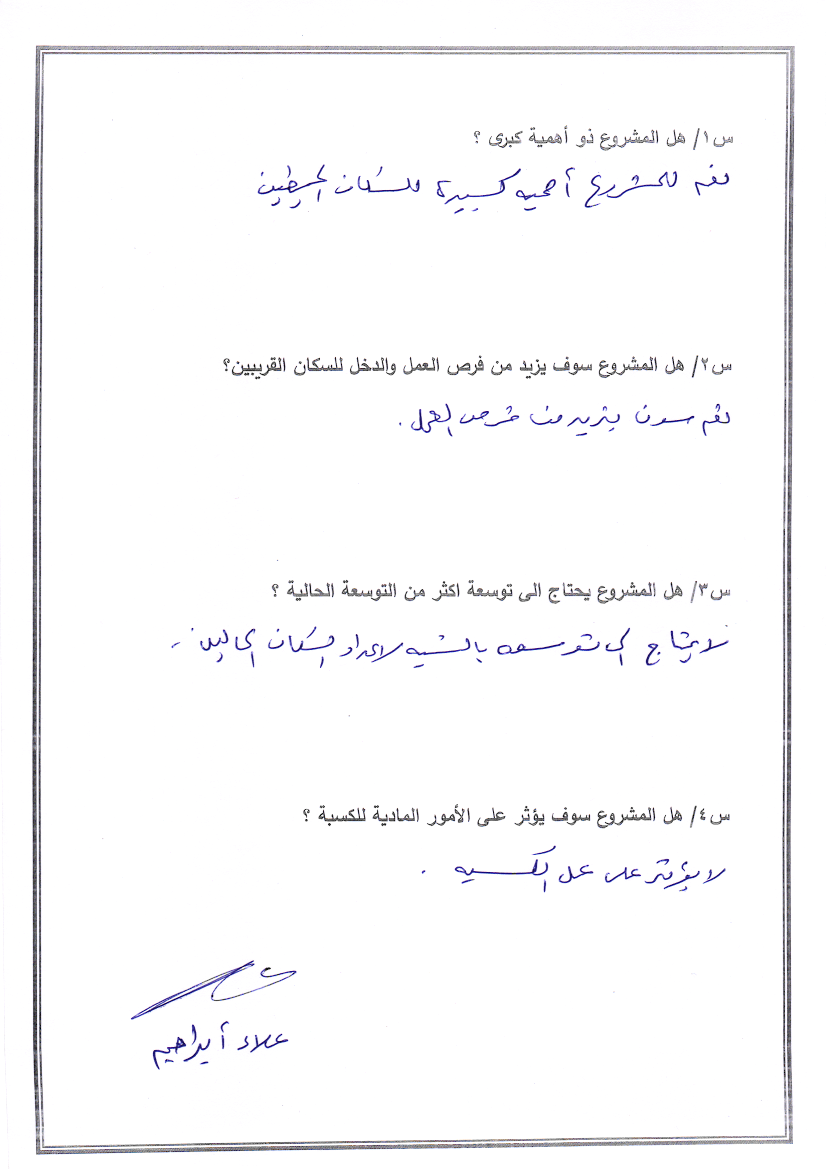 س١/ هل المشروع ذو أهمية كبرى ؟
نعم للمشروع أهميه كبيرة للسكان المحيطين
س٢/ هل المشروع سوف يزيد من فرص العمل والدخل للسكان القريبين؟
نعم سوف يزيد من فرص العمل .
س٣/ هل المشروع يحتاج الى توسعة اكثر من التوسعة الحالية ؟
لا يحتاج الى توسعه بالنسبه لاعداد السكان الحاليين .
س٤/ هل المشروع سوف يؤثر على الأمور المادية للكسبة ؟
لا يؤثر على عمل الكسبه .
علاء أبراهيم